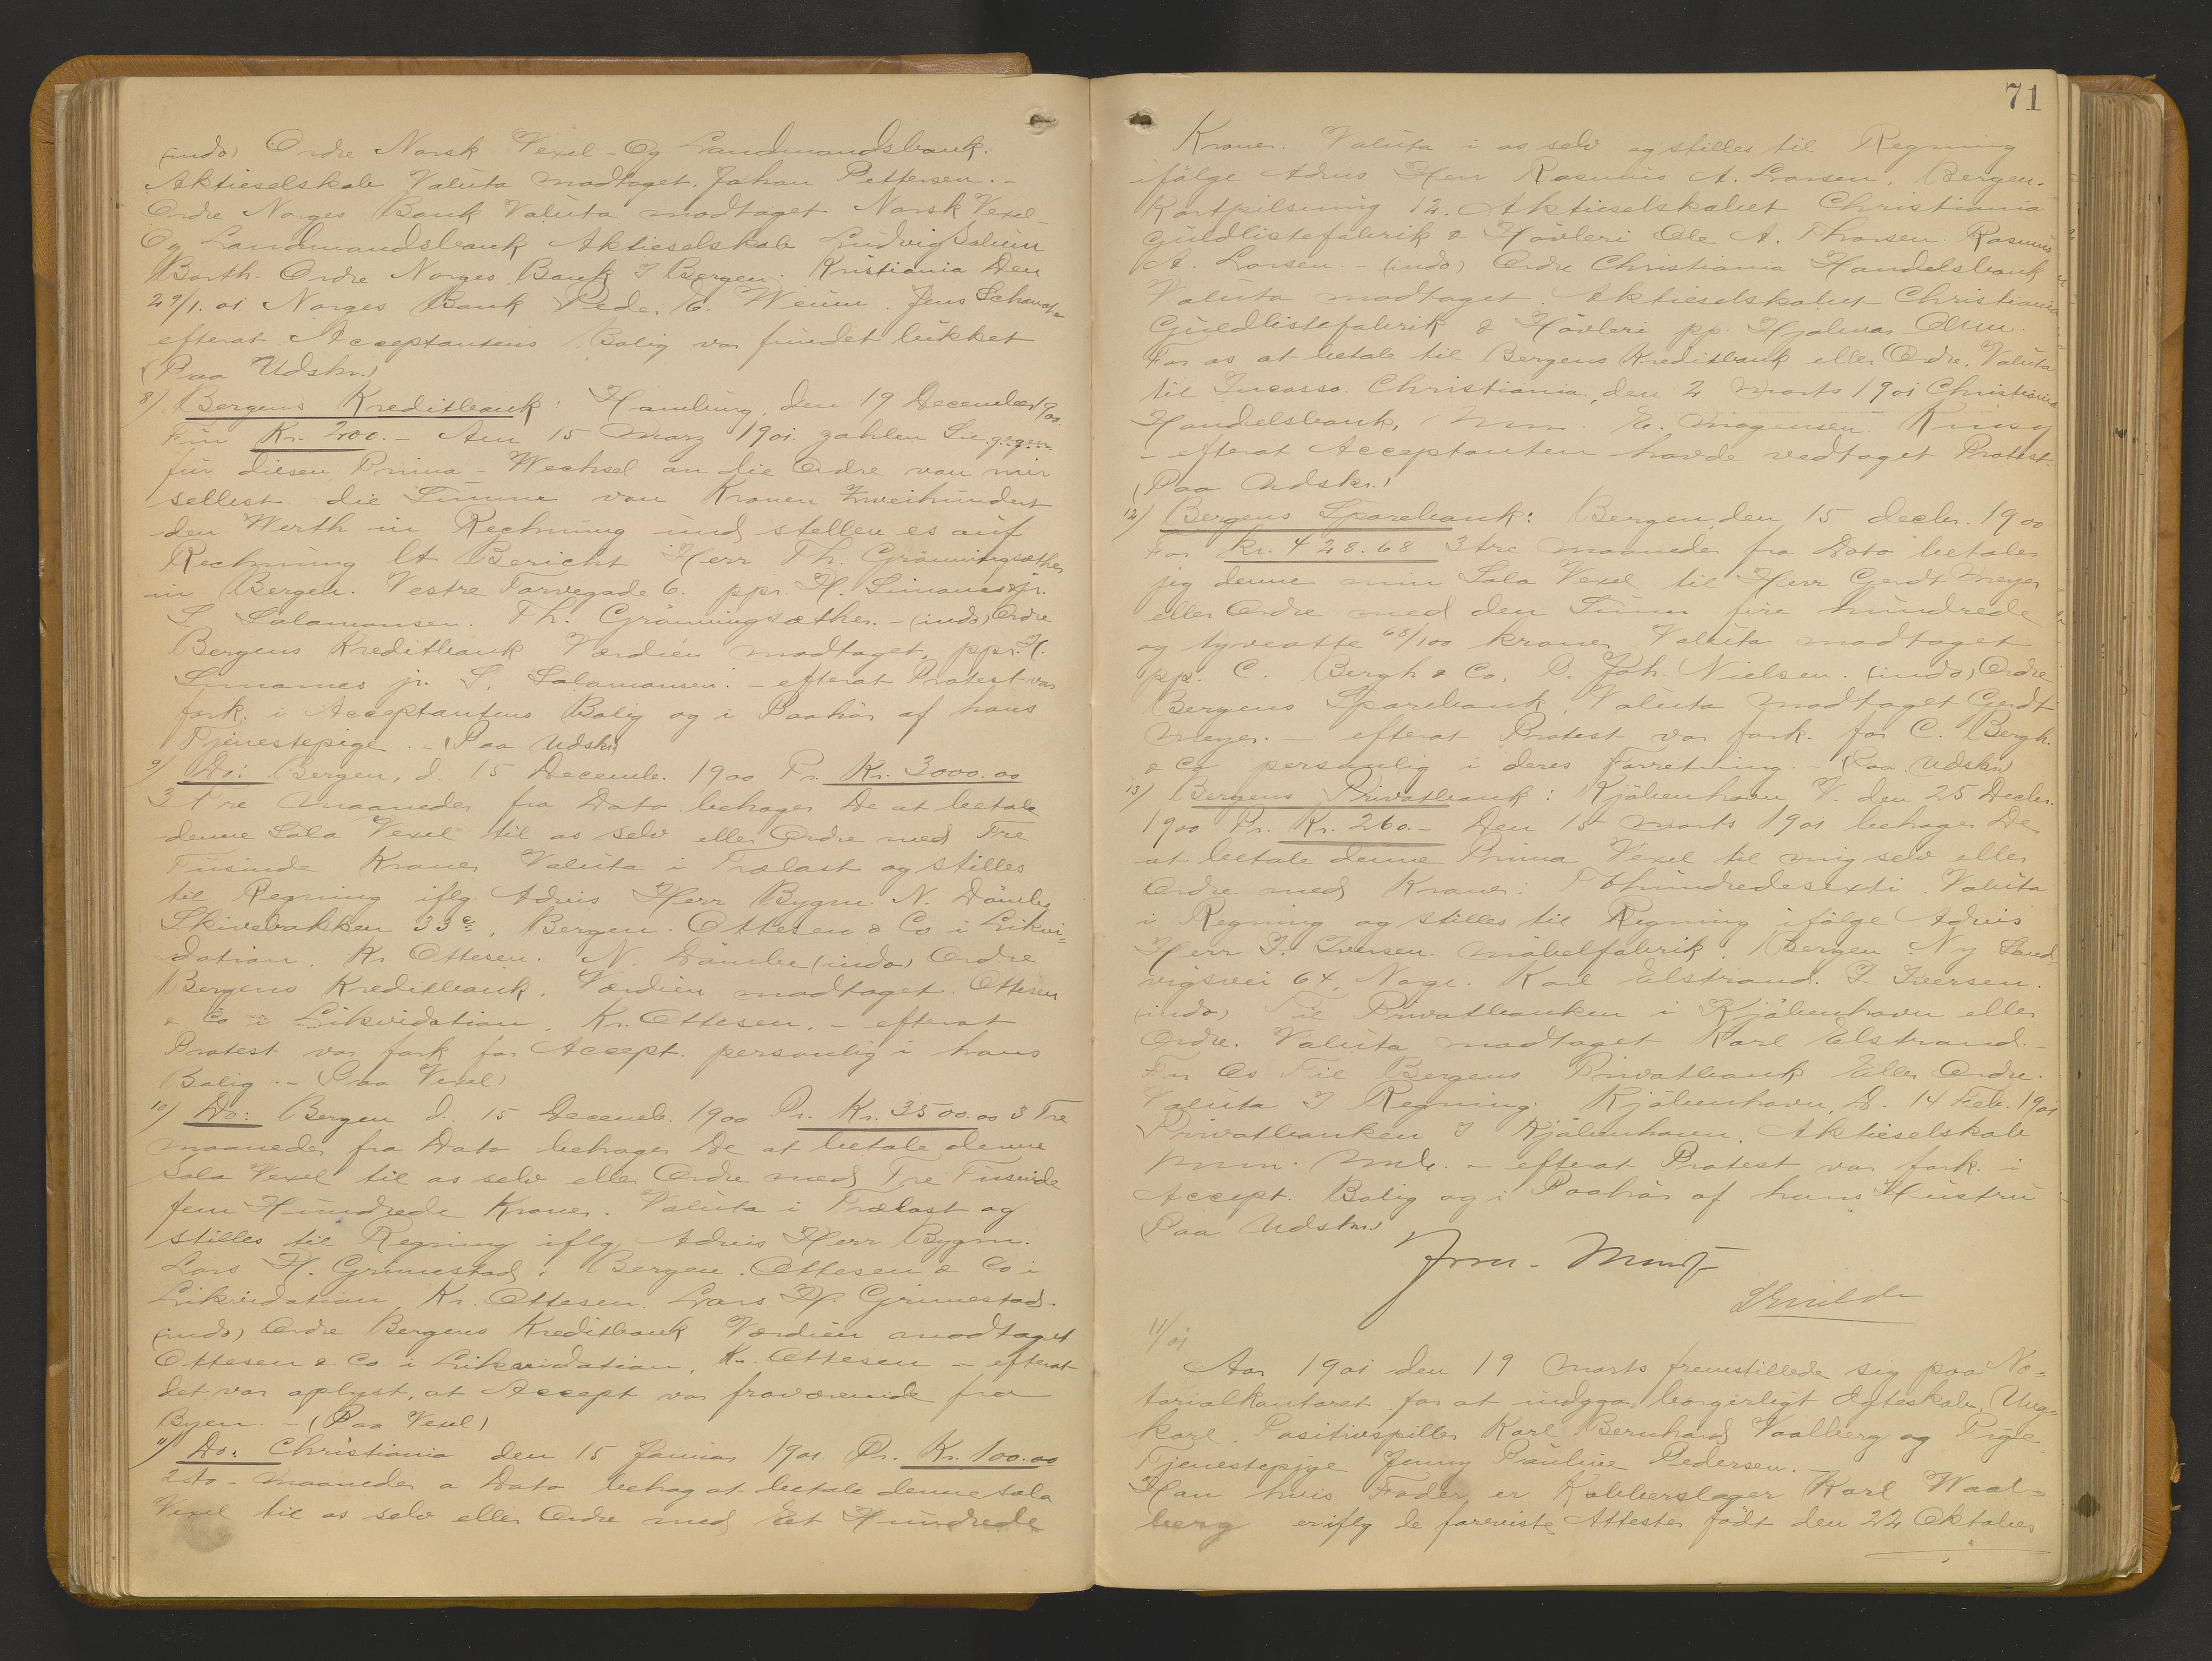 (indo) Ordre Norsk Vexel- Og Landmandsbank.
Aktieselskab Valuta modtaget. Johan Pettersen. –
Ordre Norges Bank Valuta modtaget Norsk Vexel-
Og Landmandsbank Aktieselskab Ludvig
Barth. Ordre Norges Bank I Bergen. Kristiania Den
29/1. 01 Norges Bank Peder C. Jens
efterat Acceptantens Bolig var fundet lukket
(Paa Udskr.)
8) Bergens Kreditbank: Hamburg, den 19 December 1900
Für Kr. 200.– Am 15 Marz 1901. zahlen Sie gegen
für diesen Prima-Wechsel an die Ordre von mir
selbst die Summe von Kronen Zweihundert
den Werth in Rechnung und stellen es auf
Rechnung lt Bericht Herr Th. Grönningsæther
in Bergen. Vestre Torvegade 6. ppr. H. Simames jr.
S. Salamonsen. Th. Grönningsæther. – (indo) Ordre
Bergens Kreditbank Værdien modtaget, ppr. H.
Simames jr. S. Salamonsen. – efterat Protest var
fork. i Acceptantens Bolig og i Paahör af hans
Tjenestepige. – (Paa Udskr)
9) Do: Bergen, d. 15 Decemb. 1900 Pr. Kr. 3000.00
3 Tre Maaneder fra Dato behager De at betale
denne Sola Vexel til os selv eller Ordre med Tre
Tusinde Kroner Valuta i Trælast og stilles
til Regning iflg. Advis Herr Bygm. N. Dömbe
Skivebakken 33c, Bergen. Ottesen & Co i Likvi=
dation. Kr. Ottesen. N. Dömbe (indo) Ordre
Bergens Kreditbank. Værdien modtaget. Ottesen
& Co i Likvidation. Kr. Ottesen. – efterat
Protest var fork for Accept. personlig i hans
Bolig. – (Paa Vexel)
10) Do: Bergen d. 15 Decemb. 1900 Pr. Kr. 3500.00 3 Tre
maaneder fra Dato behager De at betale denne
Sola Vexel til os selv eller Ordre med Tre Tusinde
fem Hundrede Kroner. Valuta i Trælast og
stilles til Regning iflg. Advis Herr Bygm.
Lars H. Grimestad, Bergen. Ottesen & Co i
Likvidation Kr. Ottesen. Lars H. Grimestad.
(indo) Ordre Bergens Kreditbank Værdien modtaget
Ottesen & Co i Likvidation. Kr. Ottesen – efterat
det var oplyst, at Accept var fraværende fra
Byen. – (Paa Vexel)
11) Do: Christiania den 15 Januar 1901. Pr. Kr. 100.00
2 to – Maaneder a Dato behag at betale denne Sola
Vexel til os selv eller Ordre med Et Hundrede
71
Kroner. Valuta i os selv og stilles til Regning
ifölge Advis Herr Rasmus A. Larsen, Bergen.
12. Aktieselskabet Christiania
Guldlistefabrik & Hövleri Ole A. Thorsen. Rasmus
A. Larsen – (indo) Ordre Christiania Handelsbank
Valuta modtaget. Aktieselskabet Christiania
Guldlistefabrik & Hövleri pp. Hjalmar
For os at betale til Bergens Kreditbank eller Ordre. Valuta
til Incasso. Christiania, den 2 Marts 1901 Christiania
Handelsbank, E. Mogensen.
– efterat Acceptanten havde vedtaget Protest.
(Paa Udskr.)
12) Bergens Sparebank: Bergen, den 15 decbr. 1900
For Kr. 428.68 3 tre maaneder fra Dato betaler
jeg denne min Sola Vexel til Herr Gerdt Meyer
eller Ordre med den Summ fire hundrede
og tyveotte 68/100 kroner Valuta modtaget
pp. C. Bergh & Co. D. Joh. Nielsen. (indo) Ordre
Bergens Sparebank. Valuta modtaget Gerdt
Meyer. – efterat Protest var fork. for C. Bergh.
& Co personlig i deres Forretning. – (Paa Udskr.)
13) Bergens Privatbank: Kjöbenhavn V. den 25 Decbr.
1900 Pr. Kr. 260.– Den 15 Marts 1901 behager De
at betale denne Prima Vexel til mig selv eller
Ordre med Kroner: Tohundredesexti. Valuta
i Regning og stilles til Regning ifölge Advis
Herr I. Iversen. Möbelfabrik. Bergen. Ny Sand=
vigsvei 64, Norge. Karl Elstrand. I. Iversen.
(indo) Til Privatbanken i Kjöbenhavn eller
Ordre. Valuta modtaget Karl Elstrand. –
For Os Til Bergens Privatbank Eller Ordre.
Valuta I Regning. Kjöbenhavn, D. 14 Feb. 1901
Privatbanken I Kjöbenhavn. Aktieselskab
– efterat Protest var fork. i
Accept. Bolig og i Paahör af hans Hustru
Paa Udskr.)
11/01
Aar 1901 den 19 Marts fremstillede sig paa No=
tarialkontoret for at indgaa borgerligt Ægteskab, Ung=
karl. Positivspiller Karl Bernhard Vaalberg og Pige
Tjenestepige Jenny Pauline Pedersen. –
Han hvis Fader er Kobberslager Karl Waal=
berg er iflg de foreviste Attester födt den 22 Oktober